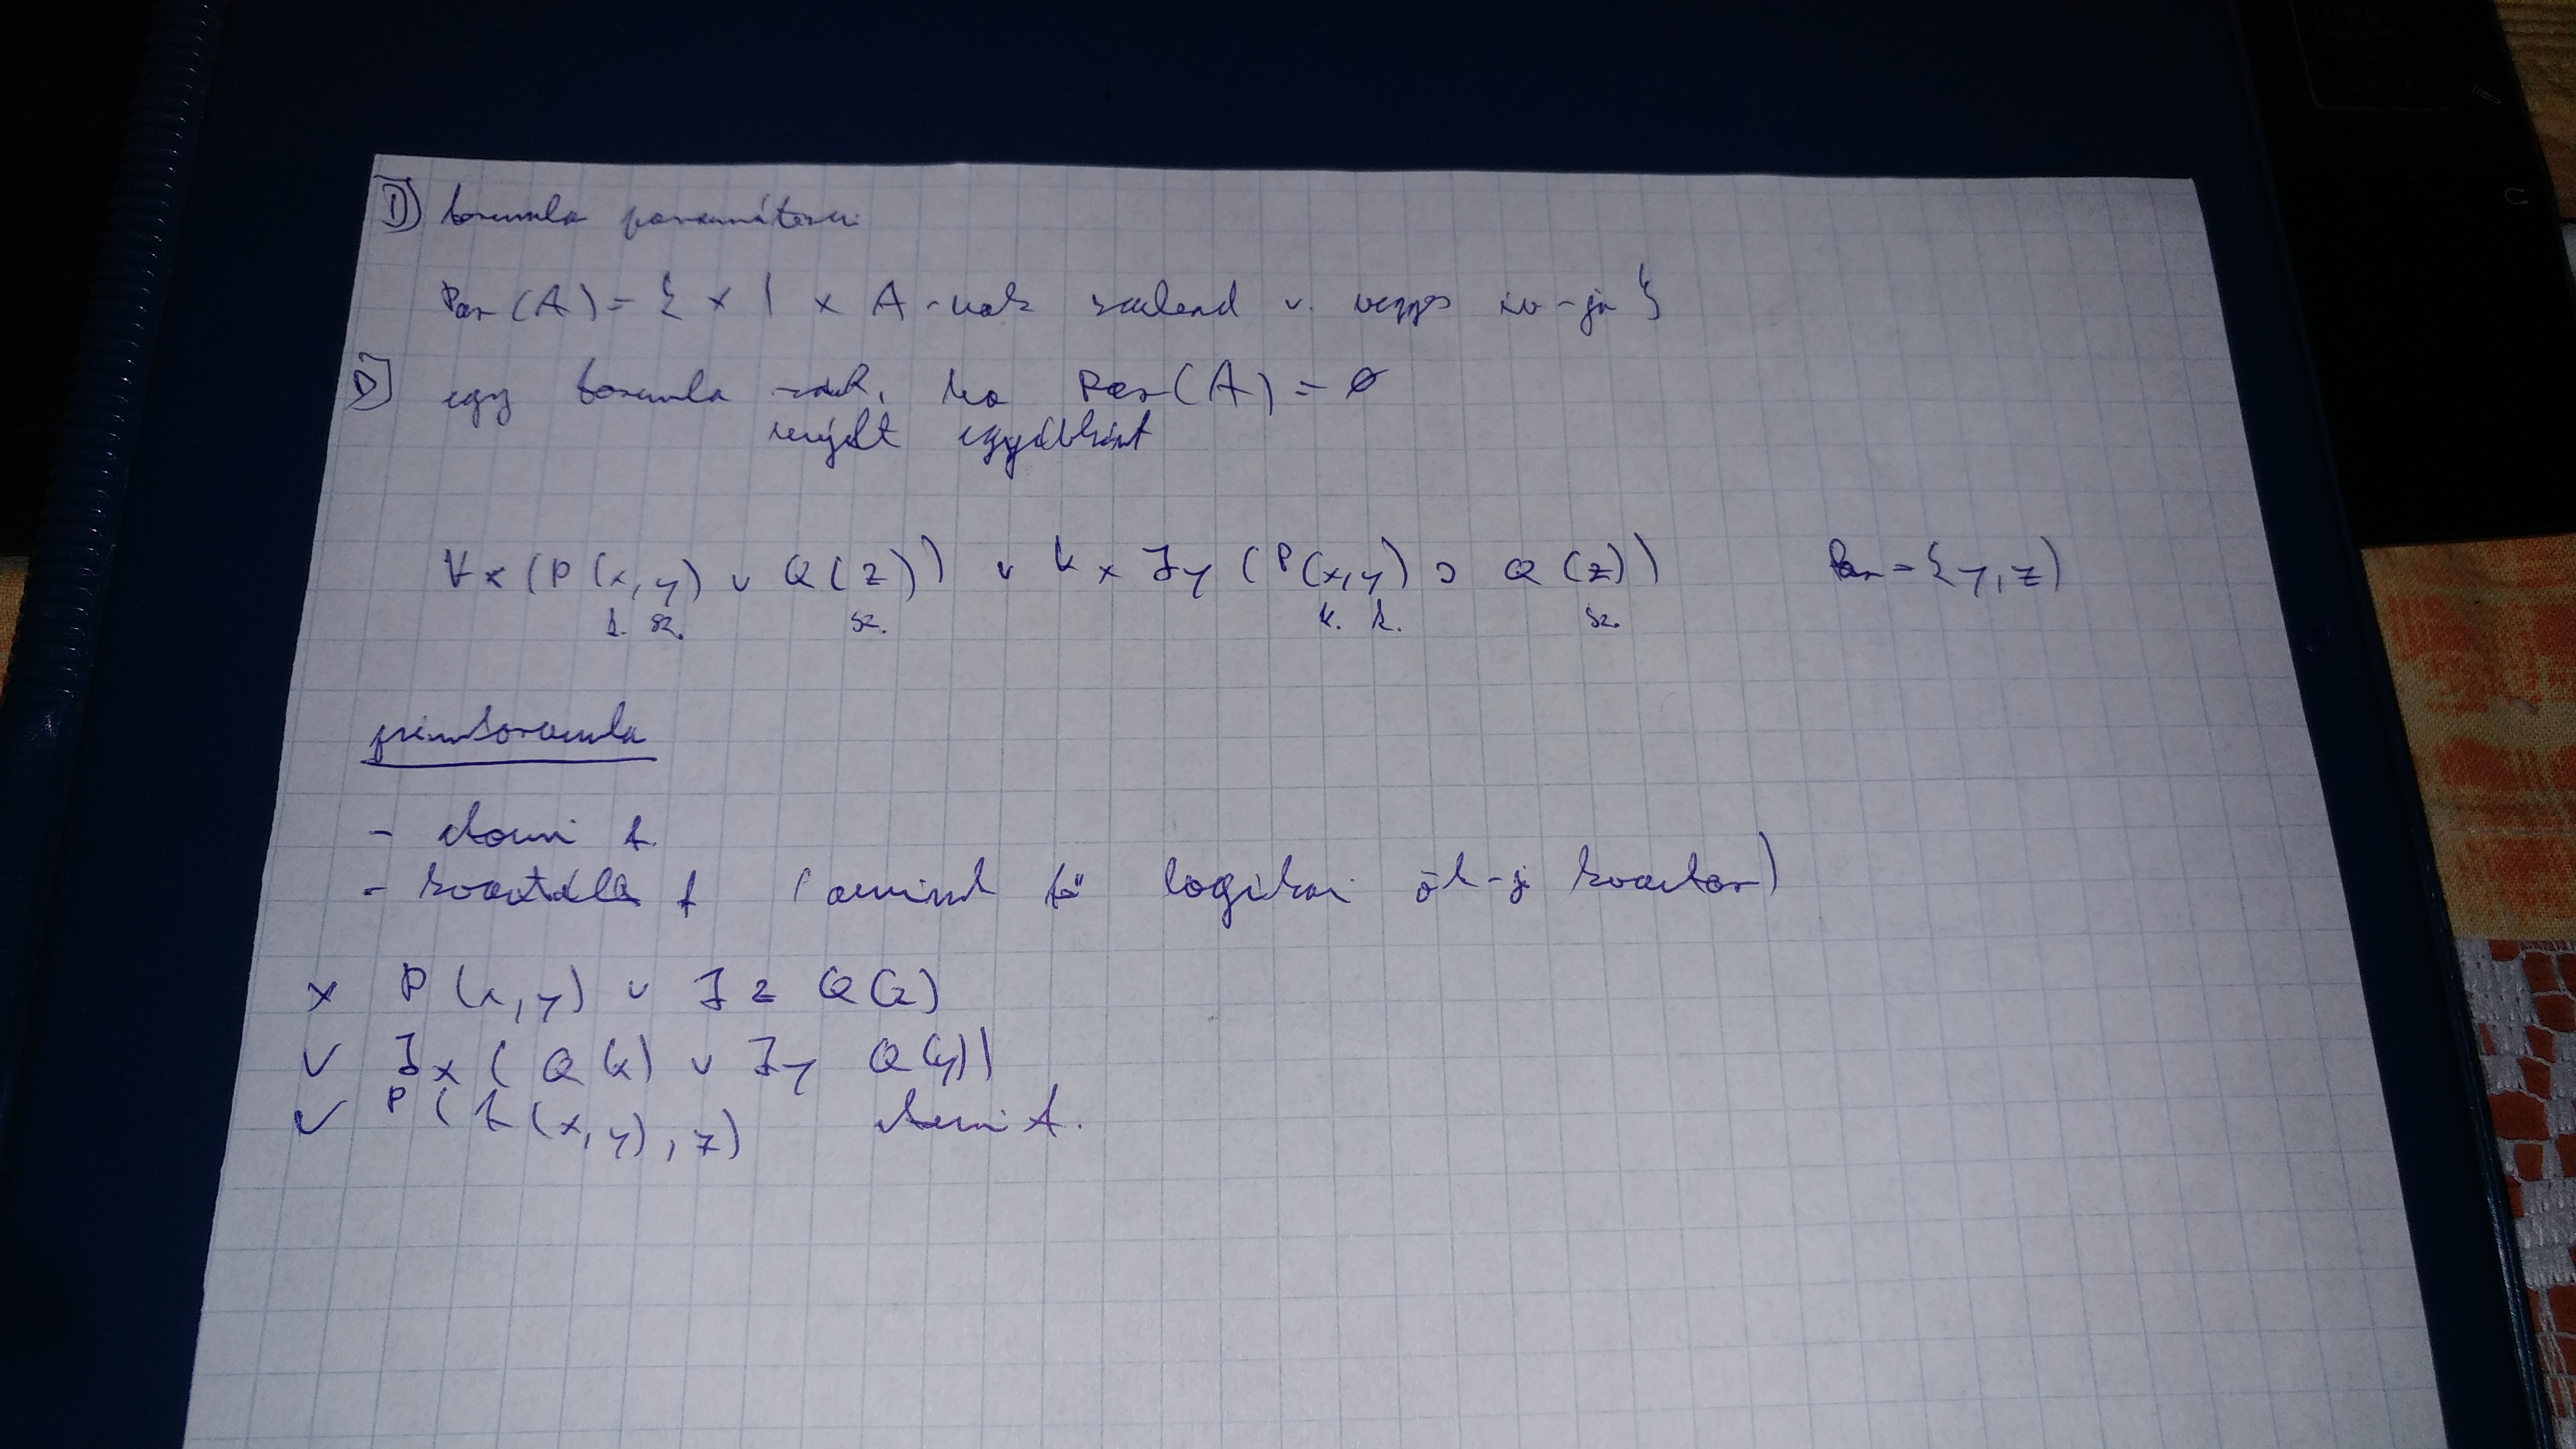 D) formula paraméterei
Par(A) = { x | x A-nak szabad v. vegyes iv-ja }
D) egy formula zárt, ha Par(A) = ∅
nyílt egyébként
∀x(P(x,y) ∨ Q(z)) ∨ ∀x ∃y (P(x,y) ⊃ Q(z)) Par = {y,z}
k. sz. sz. k. k. sz.
primformula
- atomi f.
- kvantált f (aminek fő logikai ök-je kvantor)
x P(x,y) ∨ ∃z Q(z)
✓ ∃x(Q(x) ∨ ∃y Q(y))
✓ P(f(x,y),z) atomi f.